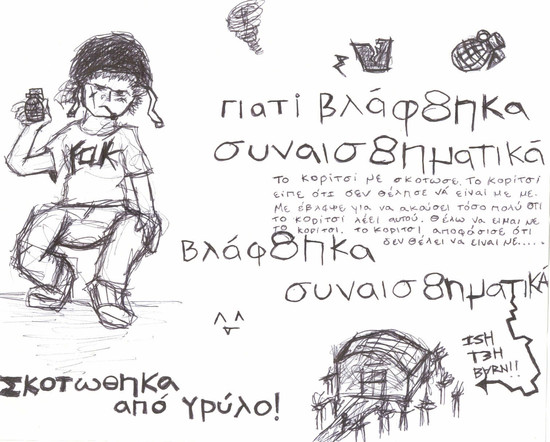 γιατί βλάφθηκα
συναισθηματικά
Το κορίτσι με σκοτωσε. Το κορίτσι
είπε ότι δεν θέλησε νά είναι με με.
Με έβλαψε για να ακούσει τόσο πολύ ότι
το κορίτσι λέει αυτού. Θέλω να ειμαι με
το κορίτσι. το κορίτσι αποφάσισε ότι
δεν θέλει να ειναι με.....
βλάφθηκα
συναισθηματικά
ISH
T3H
BARN!!
Σκοτώθηκα
από γρύλο!